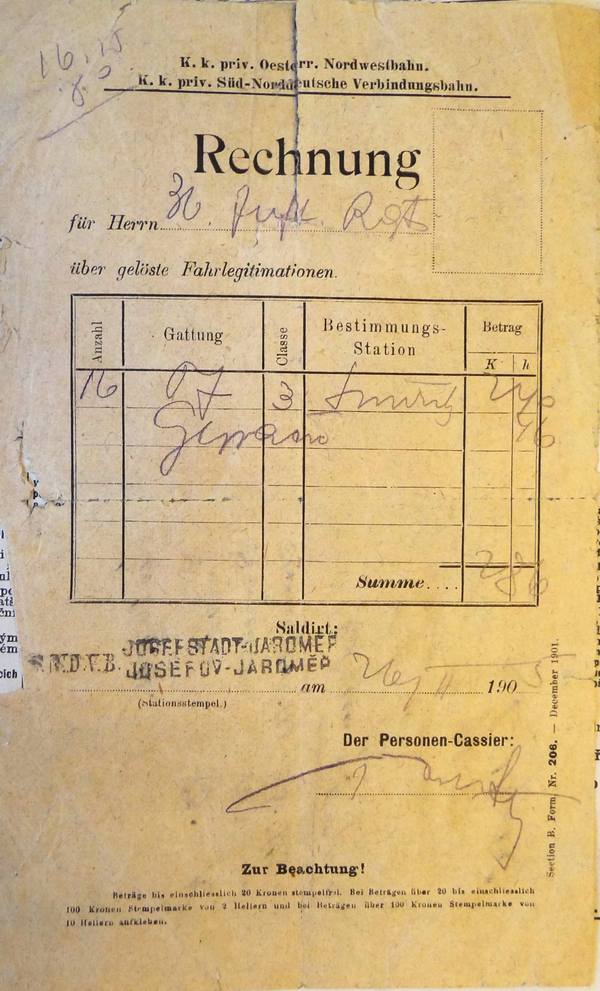 16.15
K. k. priv. Oesterr. Nordwestbahn.
K. k. priv. Süd-Norddeutsche Verbindungsbahn.
Rechnung
für Herrn
über gelöste Fahrlegitimationen.
Anzahl Gattung Classe Bestimmungs-Station Betrag
K h
16 3 240
46
Summe.... 286
Saldirt:
S.N.D.V.B. JOSEFSTADT-JAROMĚŘ
JOSEFOV-JAROMĚŘ
am 190 5
(Stationsstempel.)
Der Personen-Cassier:
Section B. Form. Nr. 206. — December 1901.
Zur Beachtung!
Beträge bis einschliesslich 20 Kronen stempelfrei. Bei Beträgen über 20 bis einschliesslich
100 Kronen Stempelmarke von 2 Hellern und bei Beträgen über 100 Kronen Stempelmarke von
10 Hellern aufkleben.